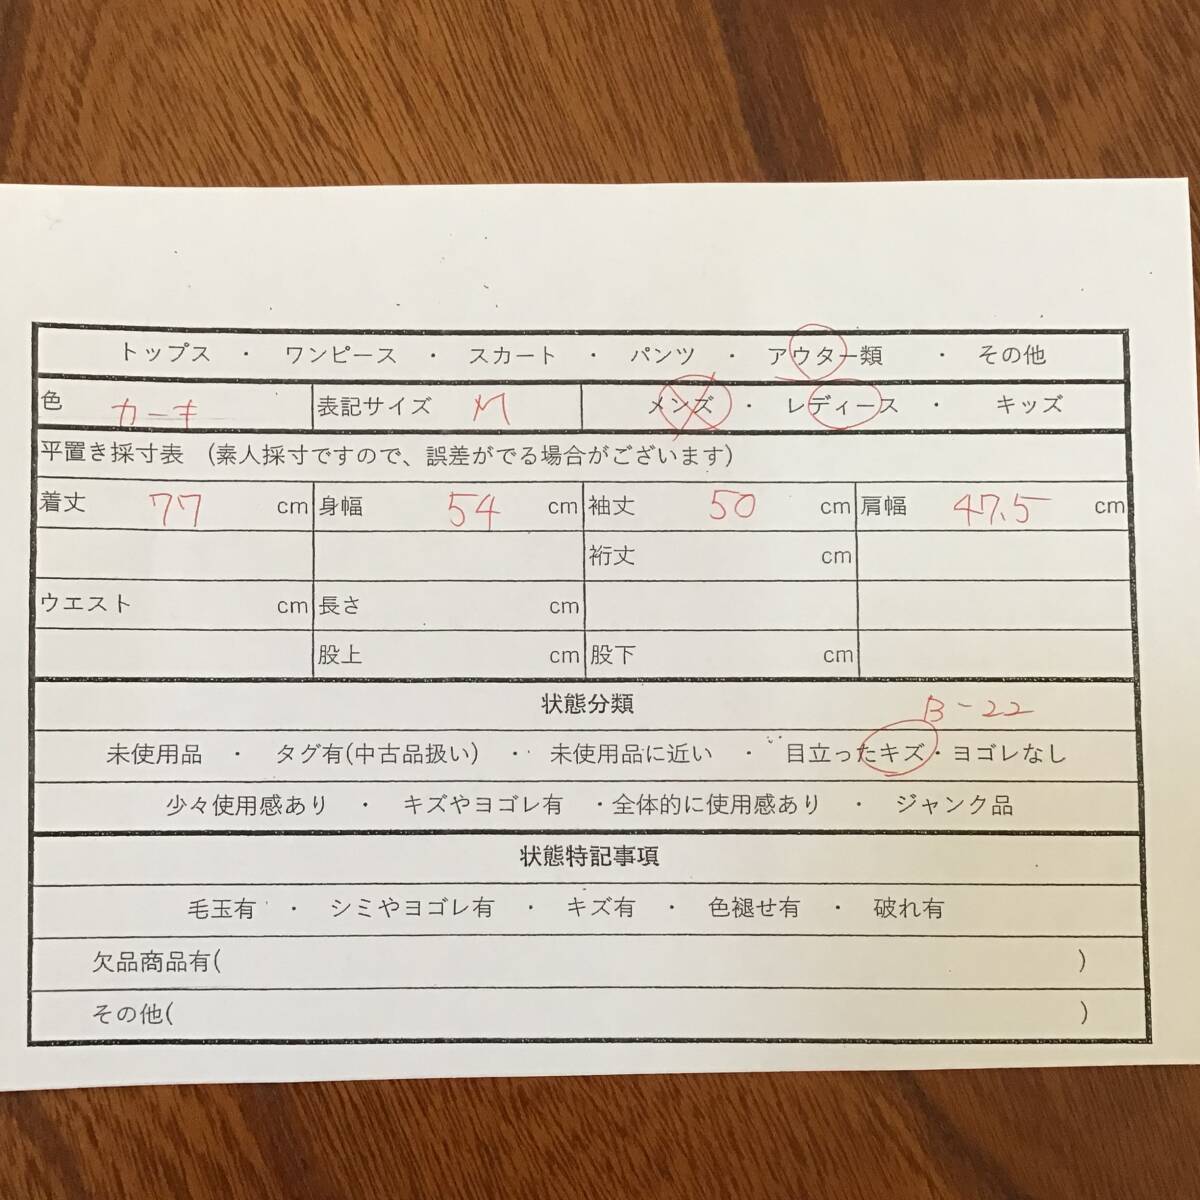 トップス ・ ワンピース ・ スカート ・ パンツ ・ アウター類 ・ その他
色 カーキ 表記サイズ M メンズ ・ レディース ・ キッズ
平置き採寸表 (素人採寸ですので、誤差がでる場合がございます)
着丈 77 cm 身幅 54 cm 袖丈 50 cm 肩幅 47.5 cm
裄丈 cm
ウエスト cm 長さ cm
股上 cm 股下 cm
状態分類
B-22
未使用品 ・ タグ有(中古品扱い) ・ 未使用品に近い ・ 目立ったキズ・ヨゴレなし
少々使用感あり ・ キズやヨゴレ有 ・全体的に使用感あり ・ ジャンク品
状態特記事項
毛玉有 ・ シミやヨゴレ有 ・ キズ有 ・ 色褪せ有 ・ 破れ有
欠品商品有( )
その他( )